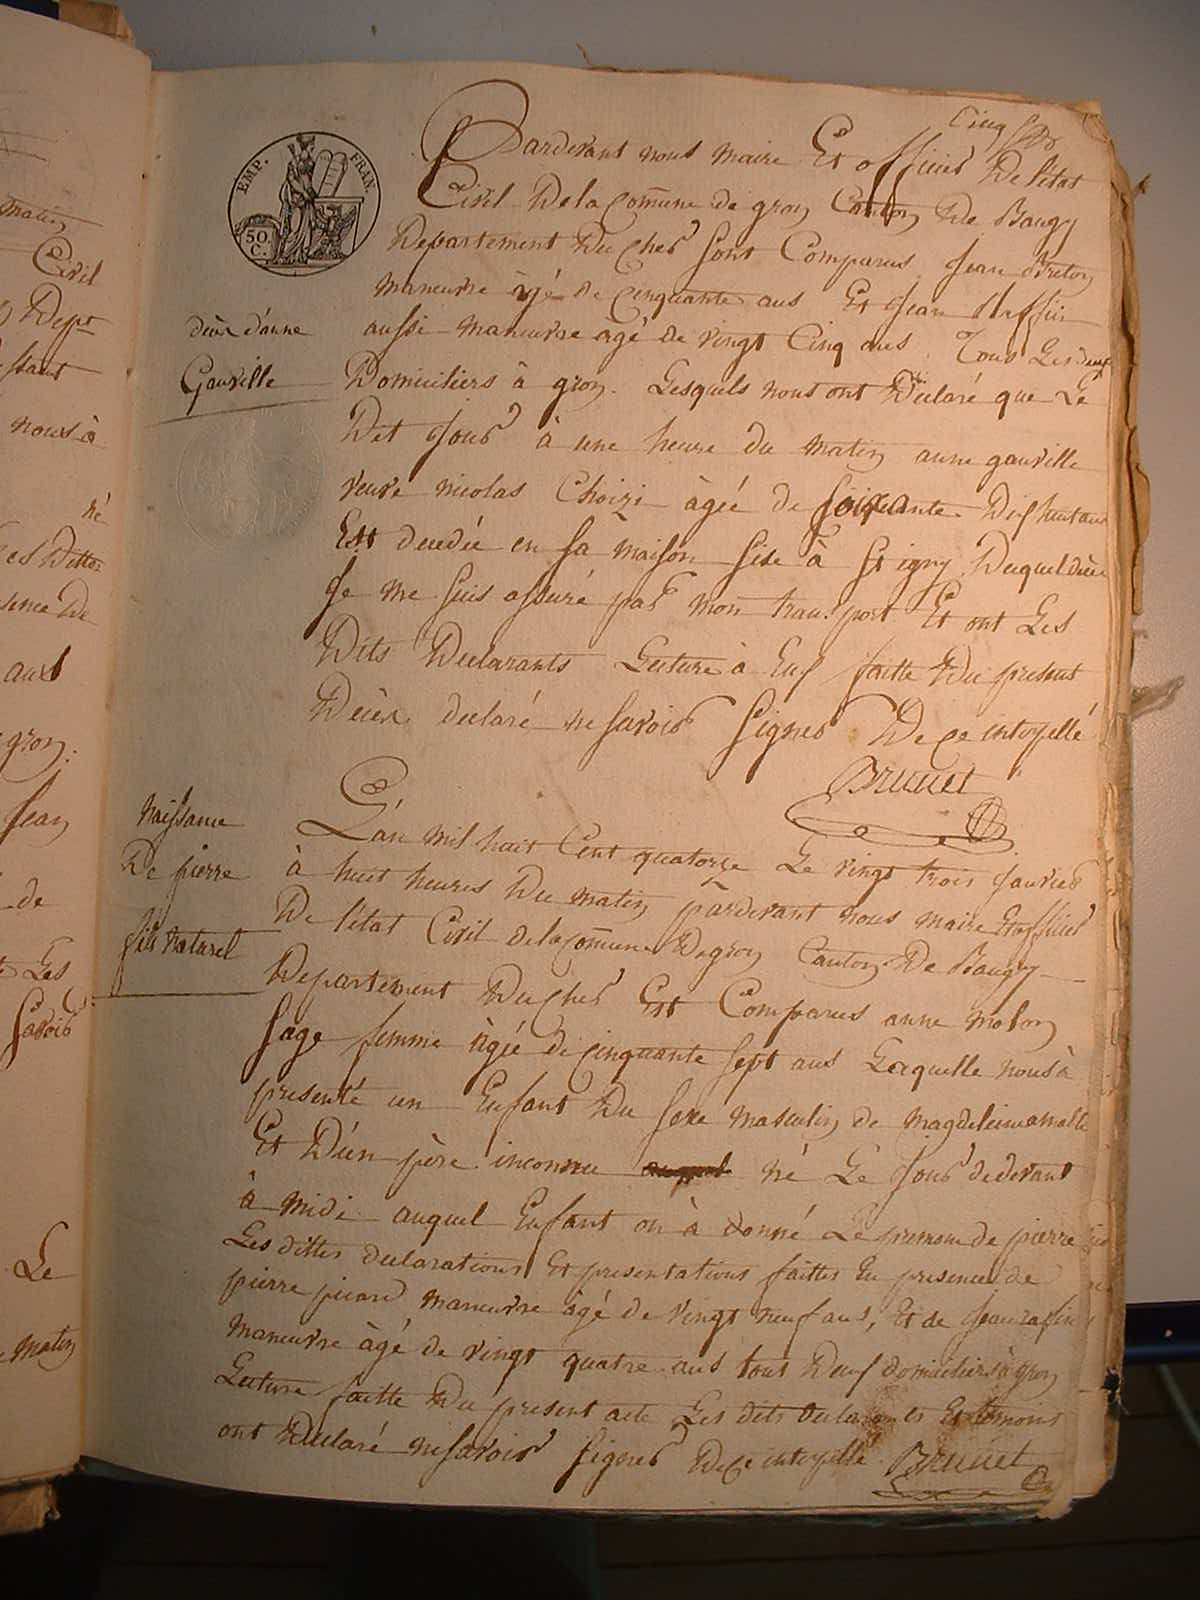 Cinq
EMP. FRAN.
50. C.
Pardevant nous maire Et officier De létat
Civil Dela Comune de gron Canton De Baugy
Departement Du cher Sont Comparus Jean Breton
maneuvre âgé de Cinquante ans Et Jean
aussi maneuvre agé de vingt Cinq ans. Tous Les deux
Domiciliers à gron. Lesquels nous ont Déclaré que Le
Dit Jour à une heure du matin anne gauville
veuve nicolas Choizi âgée de Soixante Dix huit ans
Est decedée en Sa maison Sise à St igny Duquel décès
Je me Suis assuré par mon transport Et ont Les
Dits Declarants Lecture à Eux faitte Du present
Décès declaré ne Savoir Signer De ce interpellé
Brunet
décès d'anne
Gauville
naissance
De pierre
fils naturel
L'an mil huit Cent quatorze Le vingt trois Janvier
à huit heures Du matin pardevant nous maire Et officier
De l'état Civil dela comune De gron Canton De Baugy
Departement Du cher Est Comparus anne molon
Sage femme âgée de cinquante Sept ans Laquelle nous à
presenté un Enfant Du Sexe masculin de magdeleine
Et D'un père inconnu né Le Jour dedevant
à midi auquel Enfant on à donné Le prenom de pierre
Les dittes declarations Et presentations faittes En presence de
pierre picard maneuvre âgé de vingt neuf ans, Et de Jean rafin
maneuvre âgé de vingt quatre ans tous Deux domiciliers à gron
Lecture faitte Du present acte Les dits declarants Et temoins
ont Declaré ne Savoir Signer De ce interpellé Brunet
matin
Civil
Dept
nous à
né
De
aux
gron.
Jean
de
Les
Savoir
Le
matin